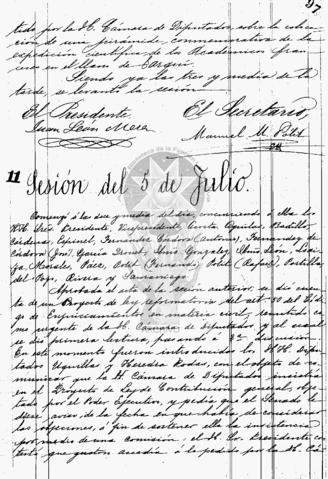 97
tido por la H. Cámara de Diputados sobre la colocación
de una pirámide conmemorativa de la
expedición científica de los Académicos fran-
ceses en el llano de Tarqui.
Siendo ya las tres y media de la
tarde, se levantó la sesión.
El Presidente, El Secretario,
Juan León Mera Manuel M. Pólit
11 Sesión del 5 de Julio.
Comenzó á las dos y media del día, concurriendo á ella los
HH. Srs. Presidente, Vicepresidente, Acosta, Aguilar, Badillo,
Cárdenas, Espinel, Fernández Córdova (Antonio), Fernández de
Córdova (José), García González,
Morales, Páez, Pólit (Fernando), Pólit (Rafael), Portilla,
del Pozo, Rivera y Samaniego.
Aprobada el acta de la sesión anterior, se dió cuen-
ta de un Proyecto de ley reformatorio del art. 50 del Códi-
go de Enjuiciamientos en materia civil, remitido co-
mo urgente de la H. Cámara de Diputados, y al cual
se dió primera lectura, pasando á 2ª discusión.
En este momento fueron introducidos los HH. Dipu-
tados Uquillas y Heredia Rodas, con el objeto de co-
municar que la H. Cámara de Diputados insistía
en el Proyecto de Ley de Contribución general, obje-
tado por el Poder Ejecutivo, y pedía que el Senado le
diese aviso, de la fecha en que había de considerar
las objeciones, á fin de sostener ella la insistencia
por medio de una comisión. el H. Sr. Presidente con-
testó, que quedaba á lo pedido por la H. Cá